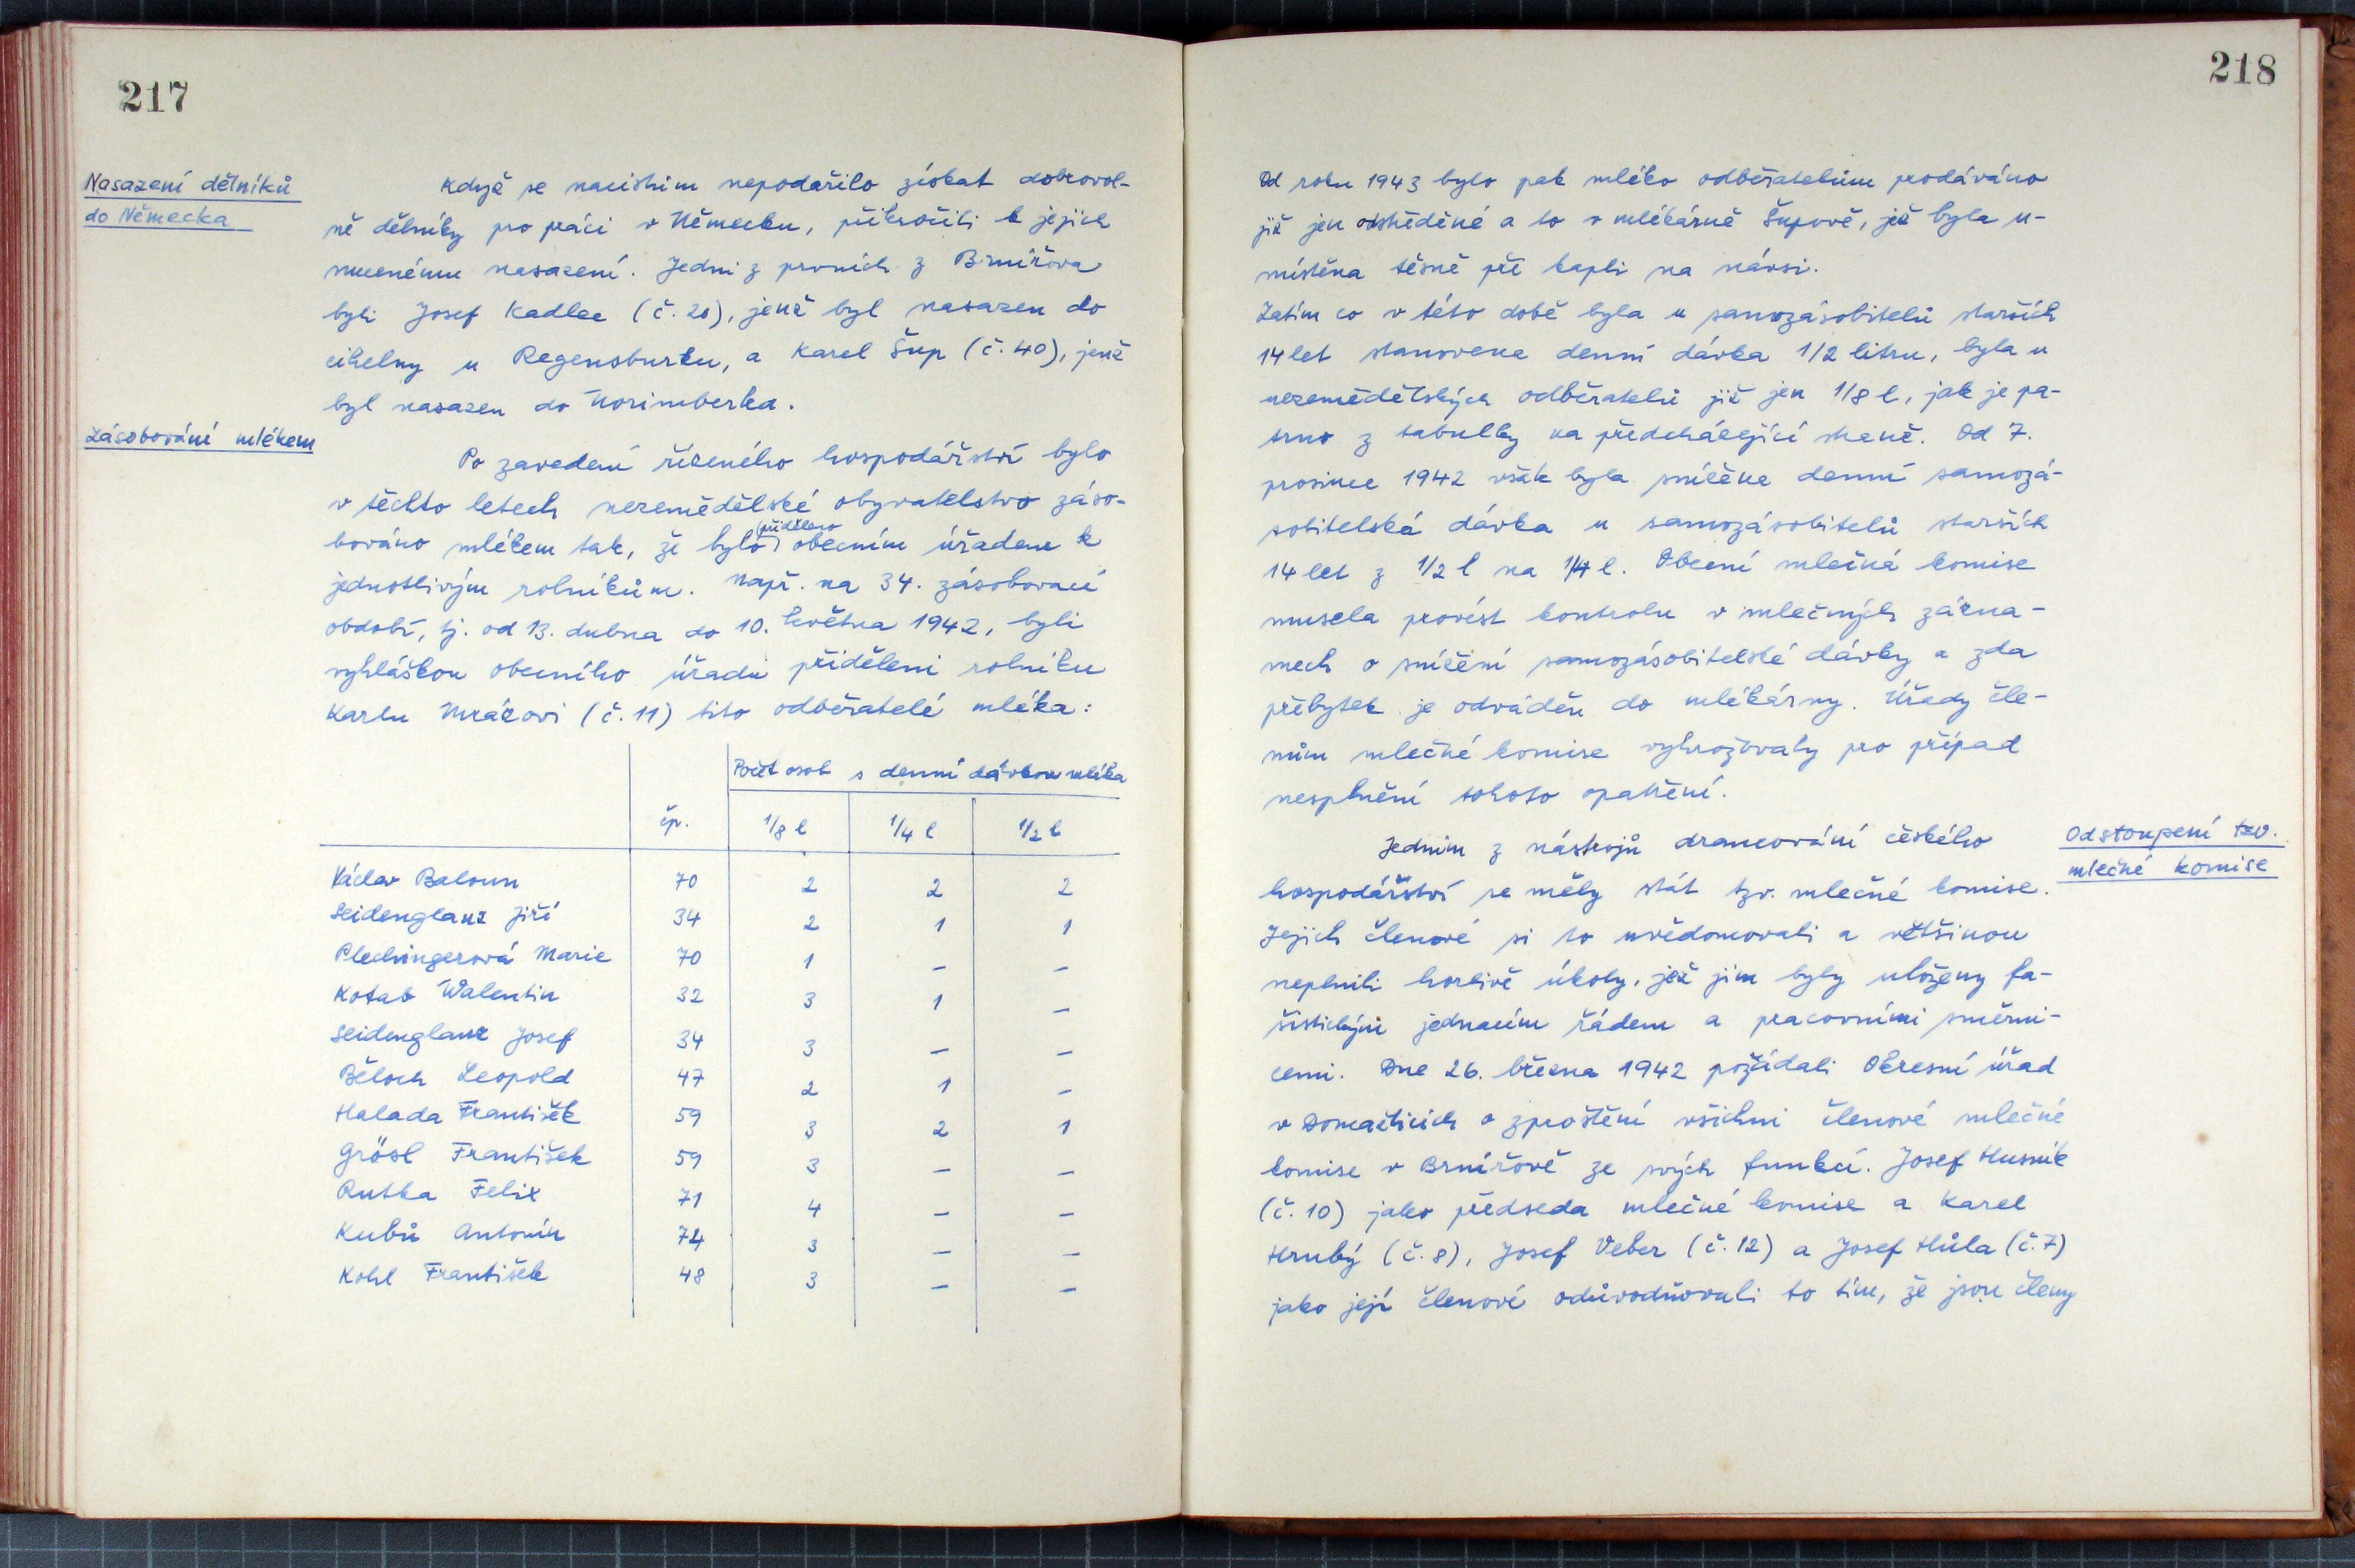 217
Nasazení dělníků
do Německa
Když se nacistům nepodařilo získat dobrovol-
ně dělníky pro práci v Německu, přikročili k jejich
nucenému nasazení. Jedni z prvních z Brnířova
byli Josef Kadlec (č. 20), jenž byl nasazen do
cihelny u Regensburku, a Karel Šup (č. 40), jenž
byl nasazen do Norimberka.
Zásobování mlékem
Po zavedení řízeného hospodářství bylo
v těchto letech nezemědělské obyvatelstvo záso-
bováno mlékem tak, že bylo přiděleno obecním úřadem k
jednotlivým rolníkům. Např. na 34. zásobovací
období, tj. od 13. dubna do 10. května 1942, byli
vyhláškou obecního úřadu přiděleni rolníku
Karlu Mrázovi (č. 11) tito odběratelé mléka:
Počet osob s denní dávkou mléka
čp. 1/8 l 1/4 l 1/2 l
Václav Baloun 70 2 2 2
Seidenglanz Jiří 34 2 1 1
Plechingerová Marie 70 1 – –
Kotab Walentin 32 3 1 –
Seidenglanz Josef 34 3 – –
Běloch Leopold 47 2 1 –
Halada František 59 3 2 1
Grösl František 59 3 – –
Rutka Felix 71 4 – –
Kubů Antonín 74 3 – –
Kohl František 48 3 – –
218
Od roku 1943 bylo pak mléko odběratelům prodáváno
již jen odstředěné a to v mlékárně Šupově, jež byla u-
místěna těsně při kapli na návsi.
Zatím co v této době byla u samozásobitelů starších
14 let stanovena denní dávka 1/2 litru, byla u
nezemědělských odběratelů již jen 1/8 l, jak je pa-
trno z tabulky na předcházející straně. Od 7.
prosince 1942 však byla snížena denní samozá-
sobitelská dávka u samozásobitelů starších
14 let z 1/2 l na 1/4 l. Obecní mlečná komise
musela provést kontrolu v mlečných zázna-
mech o snížení samozásobitelské dávky a zda
přebytek je odváděn do mlékárny. Úřady čle-
nům mlečné komise vyhrožovaly pro případ
nesplnění tohoto opatření.
Odstoupení tzv.
mlečné komise
Jedním z nástrojů drancování českého
hospodářství se měly stát tzv. mlečné komise.
Jejich členové si to uvědomovali a většinou
neplnili horlivě úkoly, jež jim byly uloženy fa-
šistickým jednacím řádem a pracovními směrni-
cemi. Dne 26. března 1942 požádali Okresní úřad
v Domažlicích o zproštění všichni členové mlečné
komise v Brnířově ze svých funkcí. Josef Husník
(č. 10) jako předseda mlečné komise a Karel
Hrubý (č. 8), Josef Veber (č. 12) a Josef Hůla (č. 7)
jako její členové odůvodňovali to tím, že jsou členy